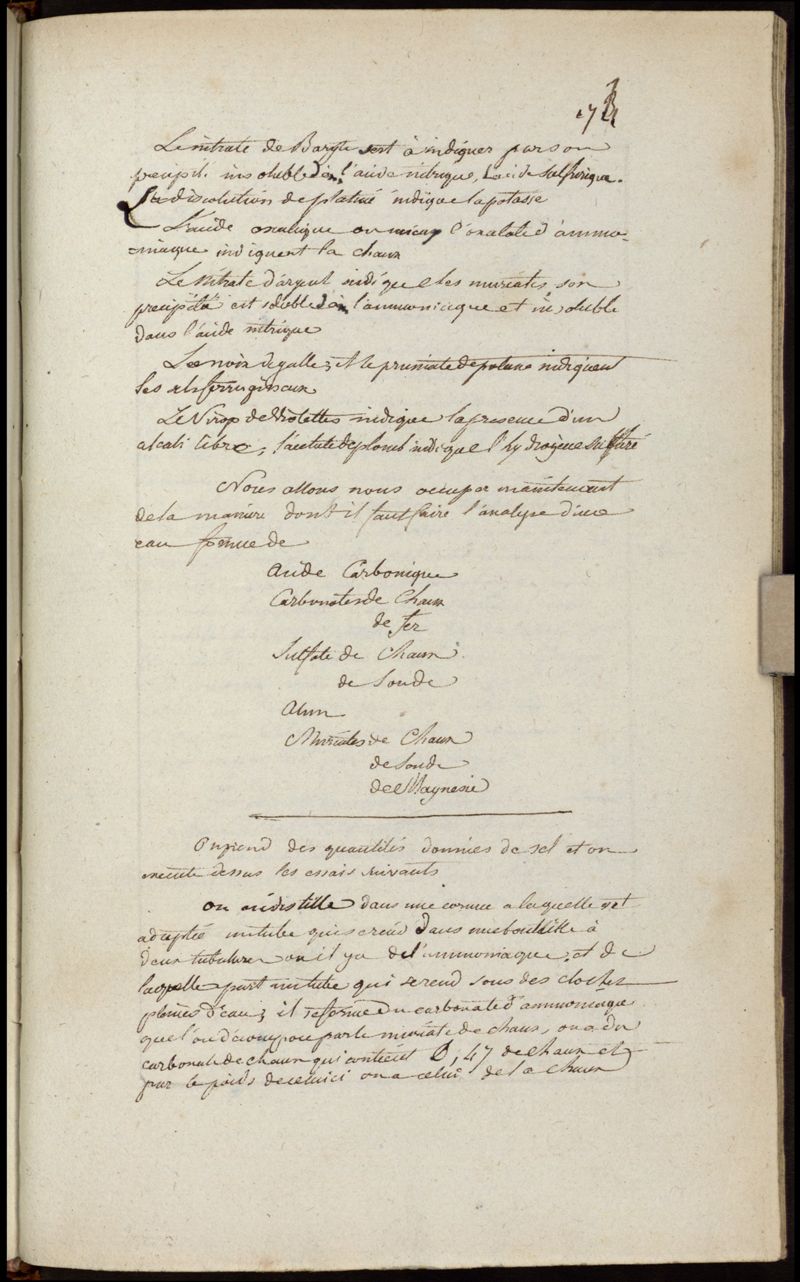 Le nitrate de Baryte sert à indiquer par son
précipité insoluble dans l'acide nitrique, l'acide sulfurique.
La dissolution de platine indique la potasse
L'acide oxalique ou mieux l'oxalate d'ammo-
niaque indiquent la chaux
Le Nitrate d'argent indique les muriates son
précipité est soluble dans l'ammoniaque et insoluble
dans l'acide nitrique
La noix de galle, et le prussiate de potasse indiquent
les sels ferrugineux
Le Sirop de Violettes indique la presence d'un
alcali libre, l'acetate de plomb indique l'hydrogène sulfuré
Nous allons nous occuper maintenant
de la maniere dont il faut faire l'analyse d'une
eau formée de
Acide Carbonique
Carbonates de Chaux
de fer
Sulfate de Chaux
de Soude
Alun
Muriates de Chaux
de Soude
de Magnesie
On prend des quantités données de sel et on
execute dessus les essais suivants
on en distille dans une cornue a laquelle est
adaptée un tube qui se rend dans une bouteille à
deux tubulures ou il y a de l'ammoniaque, et de
laquelle part un tube qui se rend sous des cloches
pleines d'eau; il se forme du carbonate d'ammoniaque
que l'on décompose par le muriate de chaux, on a du
carbonate de chaux qui contient 0,47 de chaux et
par le poids de celui ci on a celui de la chaux